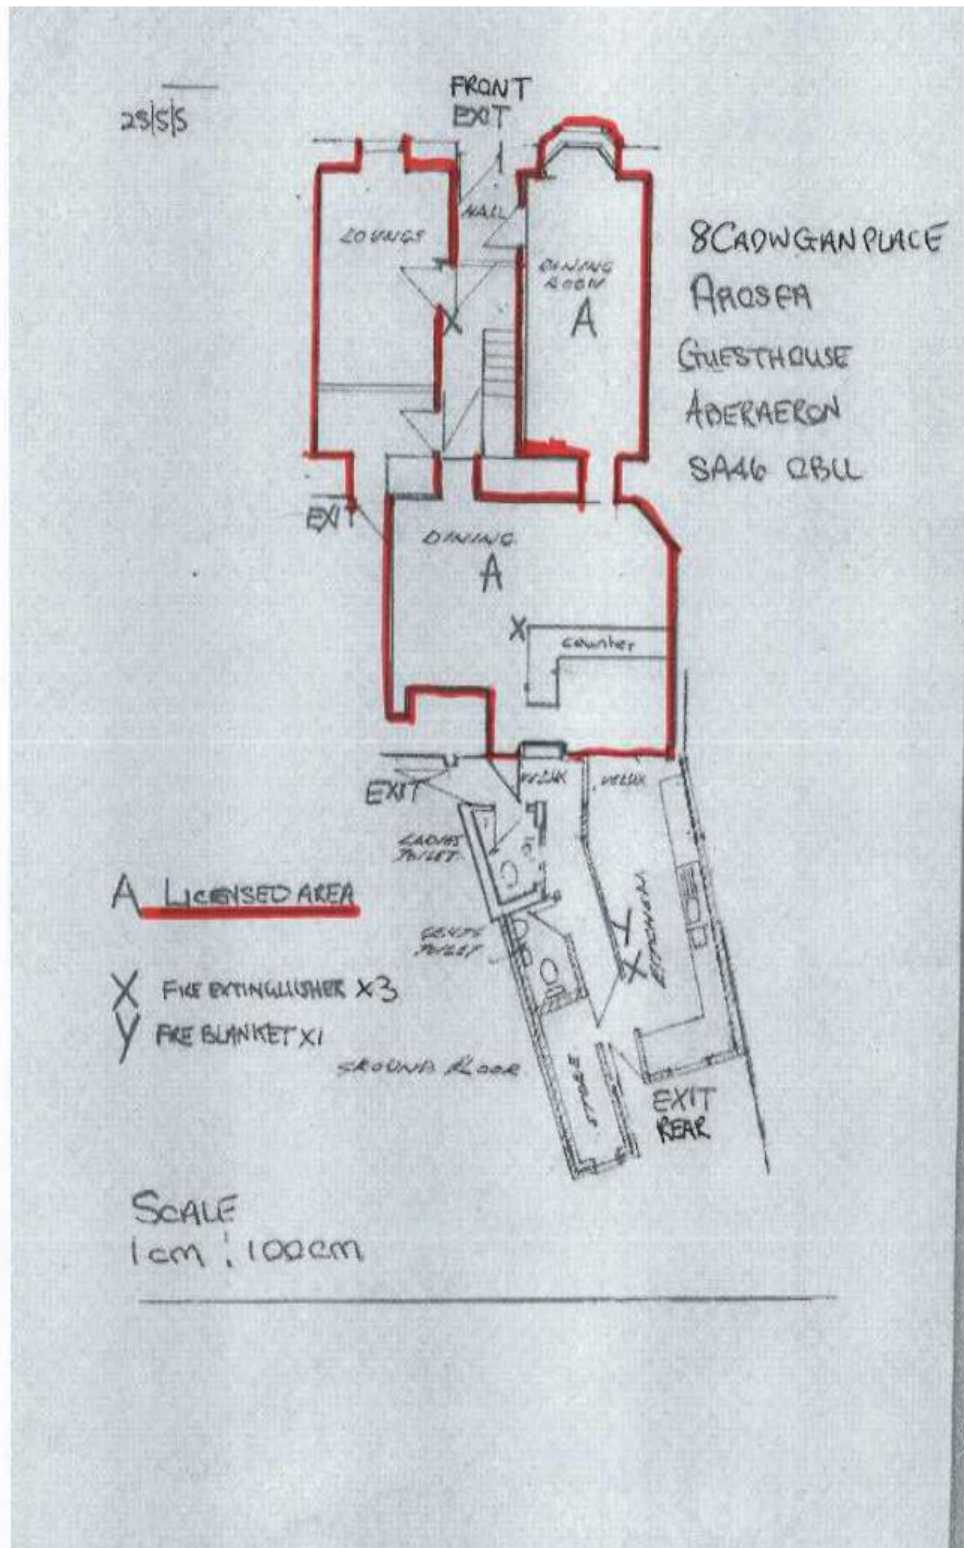 FRONT
EXIT
25/5/5
HALL
LOUNGS
DINING
ROOM
A
8 CADWGAN PLACE
AROSFA
GUESTHOUSE
ABERAERON
SA46 0BU
EXIT
DINING
A
X
X
counter
EXIT
VELUX
VELUX
LADIES
TOILET
A LICENSED AREA
GENTS
TOILET
KITCHEN
Y
X
X FIRE EXTINGUISHER X3
Y FIRE BLANKET X1
GROUND FLOOR
EXIT
REAR
SCALE
1cm : 100cm